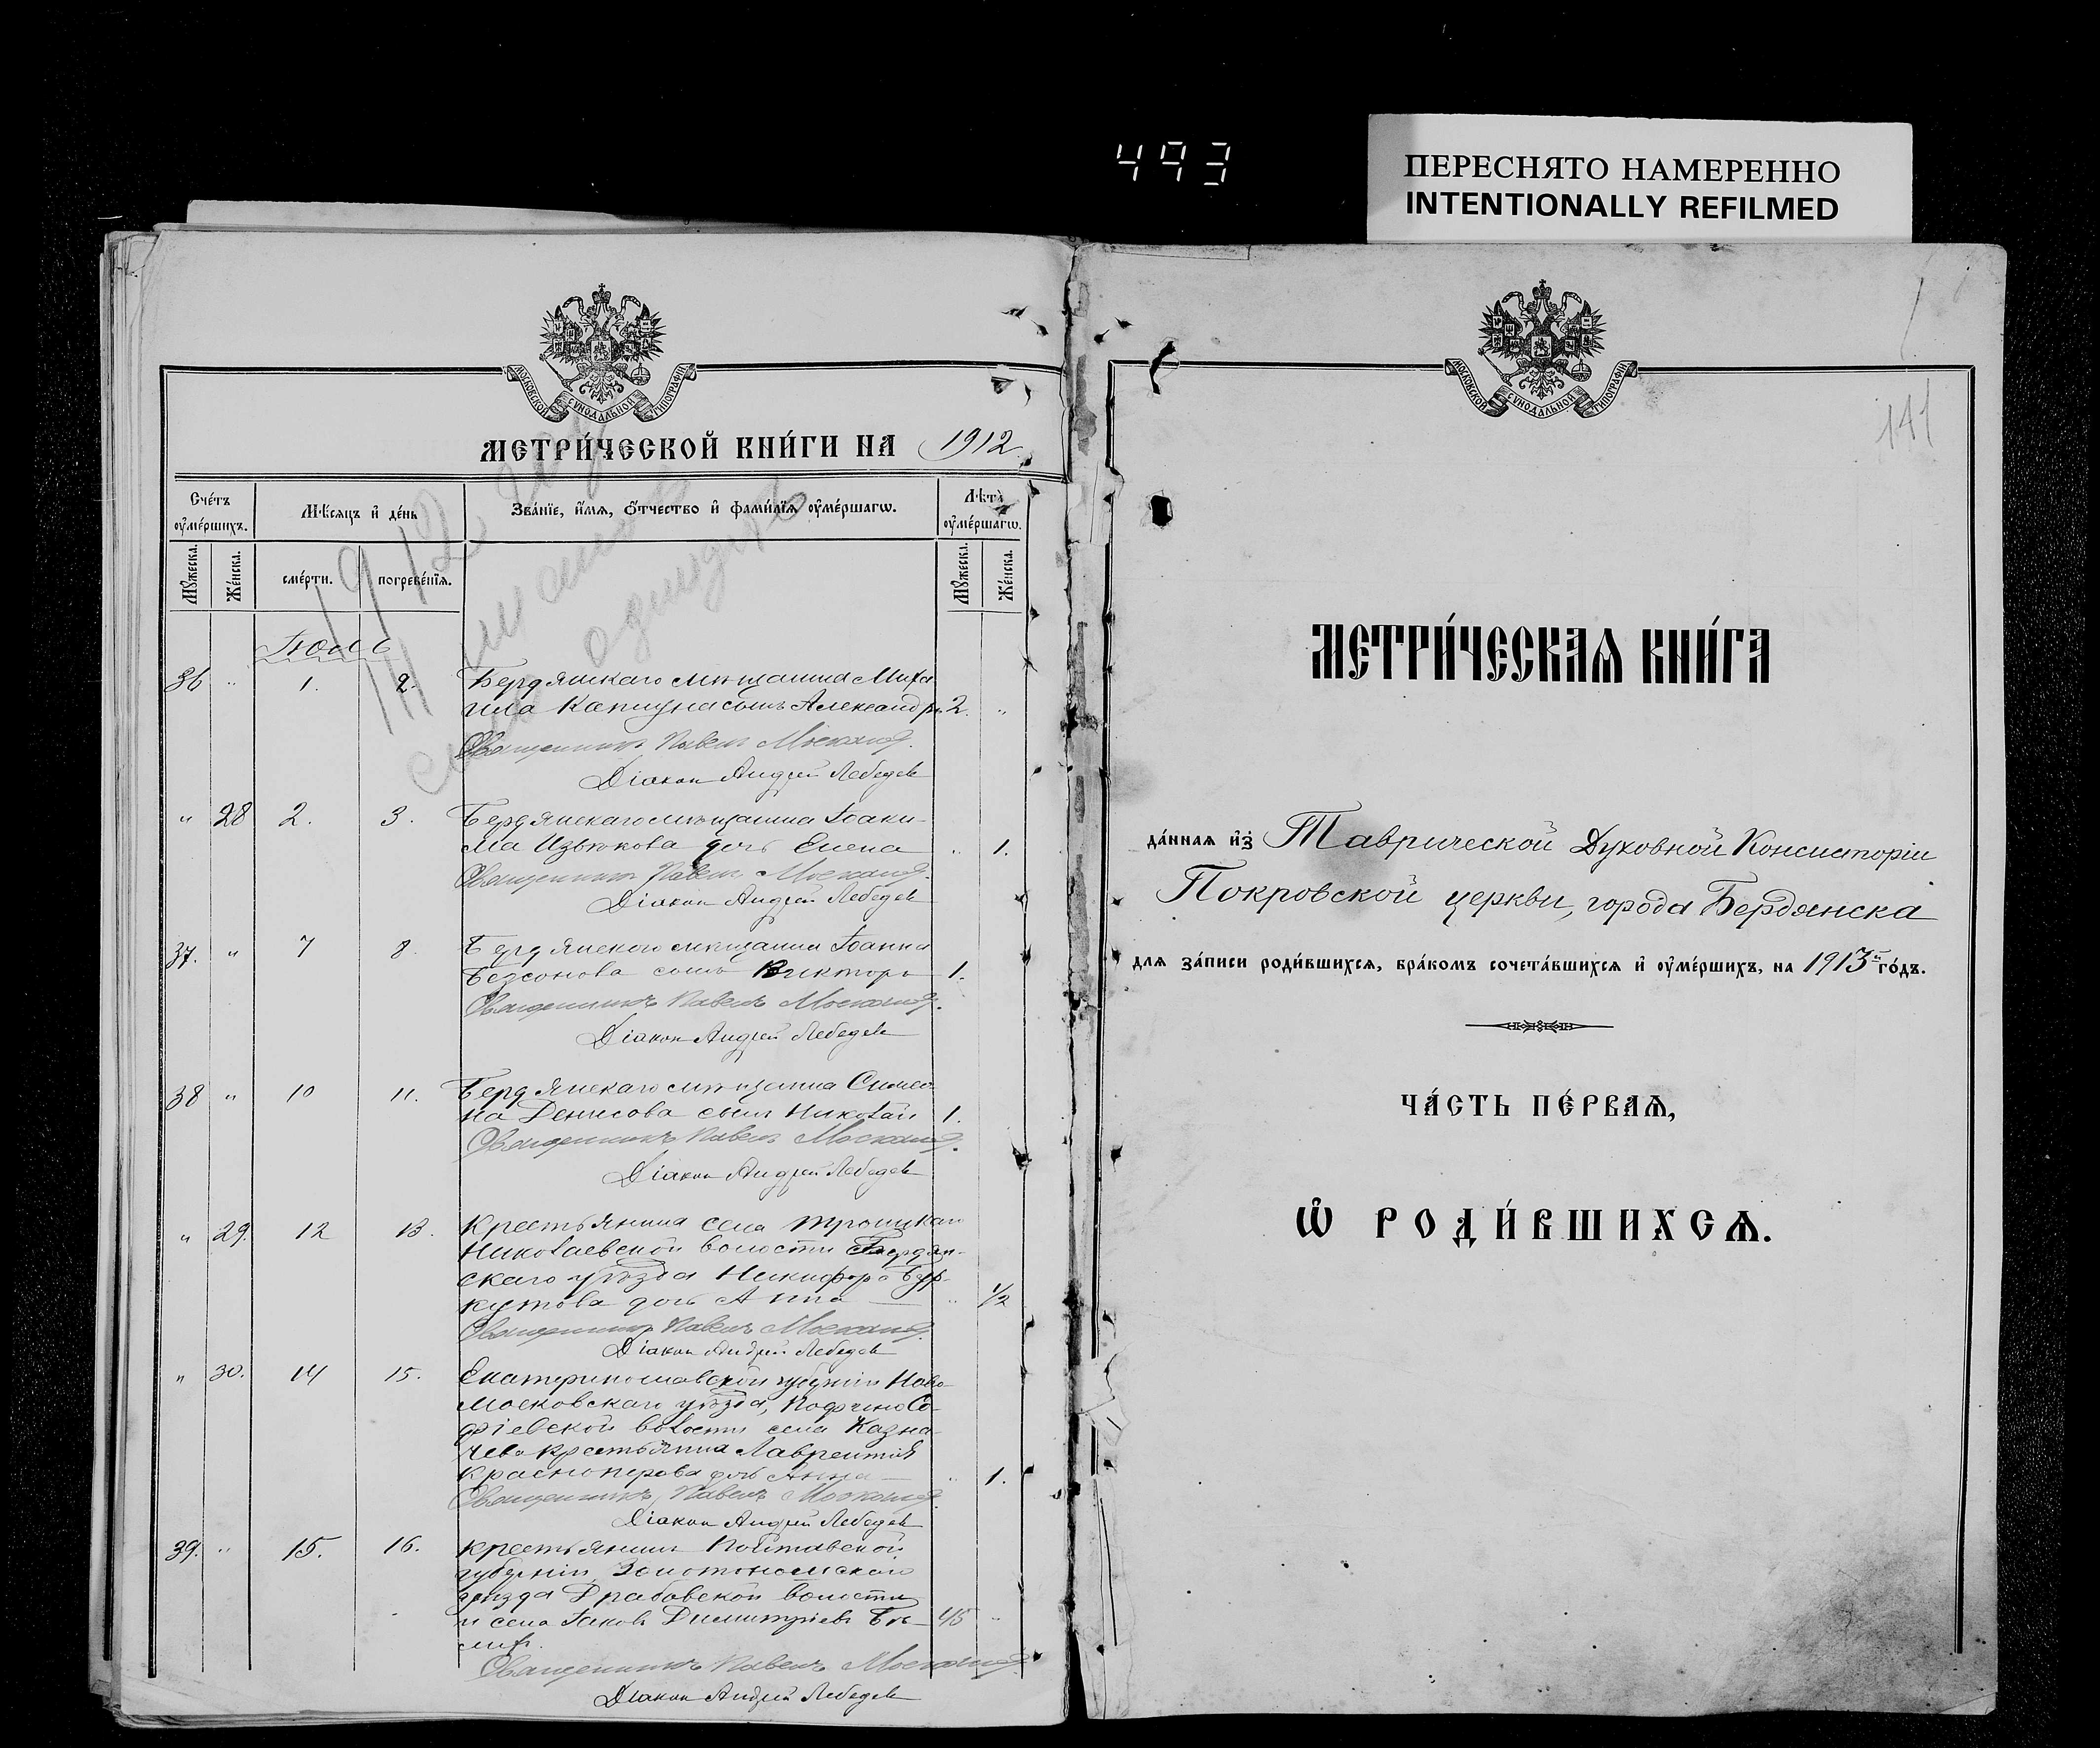 493
ПЕРЕСНЯТО НАМЕРЕННО
INTENTIONALLY REFILMED
МОСКОВСКОЙ СѴНОДАЛЬНОЙ ТИПОГРАФІИ
МЕТРИ́ЧЕСКОЙ КНИ́ГИ НА 1912
Сче́тъ ᲂу҆ме́ршихъ.
Мѣ́сѧцъ и҆ де́нь
Зва́нїе, и҆́мѧ, ѻ҆́тчество и҆ фами́лїѧ ᲂу҆ме́ршагѡ.
Лѣ́та ᲂу҆ме́ршагѡ.
Мꙋ́жеска.
Же́нска.
сме́рти.
погребе́нїѧ.
Мꙋ́жеска.
Же́нска.
1912
Іюль
36 " 1. 2. Бердянскаго мѣщанина Миха
ила Капшуна сынъ Александръ 2. "
Священникъ Павелъ
Діаконъ Андрей Лебедевъ
" 28 2. 3. Бердянскаго мѣщанина Іоаки-
ма Изъюкова дочь Елена " 1.
Священникъ Павелъ
Діаконъ Андрей Лебедевъ
37. " 7 8. Бердянскаго мѣщанина Іоанна
Безсонова сынъ Викторъ 1.
Священникъ Павелъ
Діаконъ Андрей Лебедевъ
38 " 10 11. Бердянскаго мѣщанина Симео-
на Денисова сынъ Николай 1.
Священникъ Павелъ
Діаконъ Андрей Лебедевъ
" 29. 12 13. Крестьянина села Троицкаго
Николаевской волости Бердян-
скаго уѣзда Никифора Бур-
кутова дочь Анна " 1/2
Священникъ Павелъ
Діаконъ Андрей Лебедевъ
" 30. 14 15. Екатеринославской губерніи Ново-
московскаго уѣзда, Со-
фіевской волости села Казна-
чева крестьянина Лаврентія
Красноперова дочь Анна " 1.
Священникъ Павелъ
Діаконъ Андрей Лебедевъ
39. " 15. 16. Крестьянинъ Полтавской
губерніи, Золотоношскаго
уѣзда Драбовской волости
и села Іаковъ Димитріевъ 45 "
Священникъ Павелъ
Діаконъ Андрей Лебедевъ
МОСКОВСКОЙ СѴНОДАЛЬНОЙ ТИПОГРАФІИ
141
МЕТРИ́ЧЕСКАѦ КНИ́ГА
да́нная и҆з̾ Таврической Духовной Консисторіи
Покровской церкви, города Бердянска
для за́писи роди́вшихсѧ, бра́комъ сочета́вшихсѧ и҆ ᲂу҆ме́ршихъ, на 1913й го́дъ.
ЧА́СТЬ ПЕ́РВАѦ,
Ѡ҆ РОДИ́ВШИХСѦ.